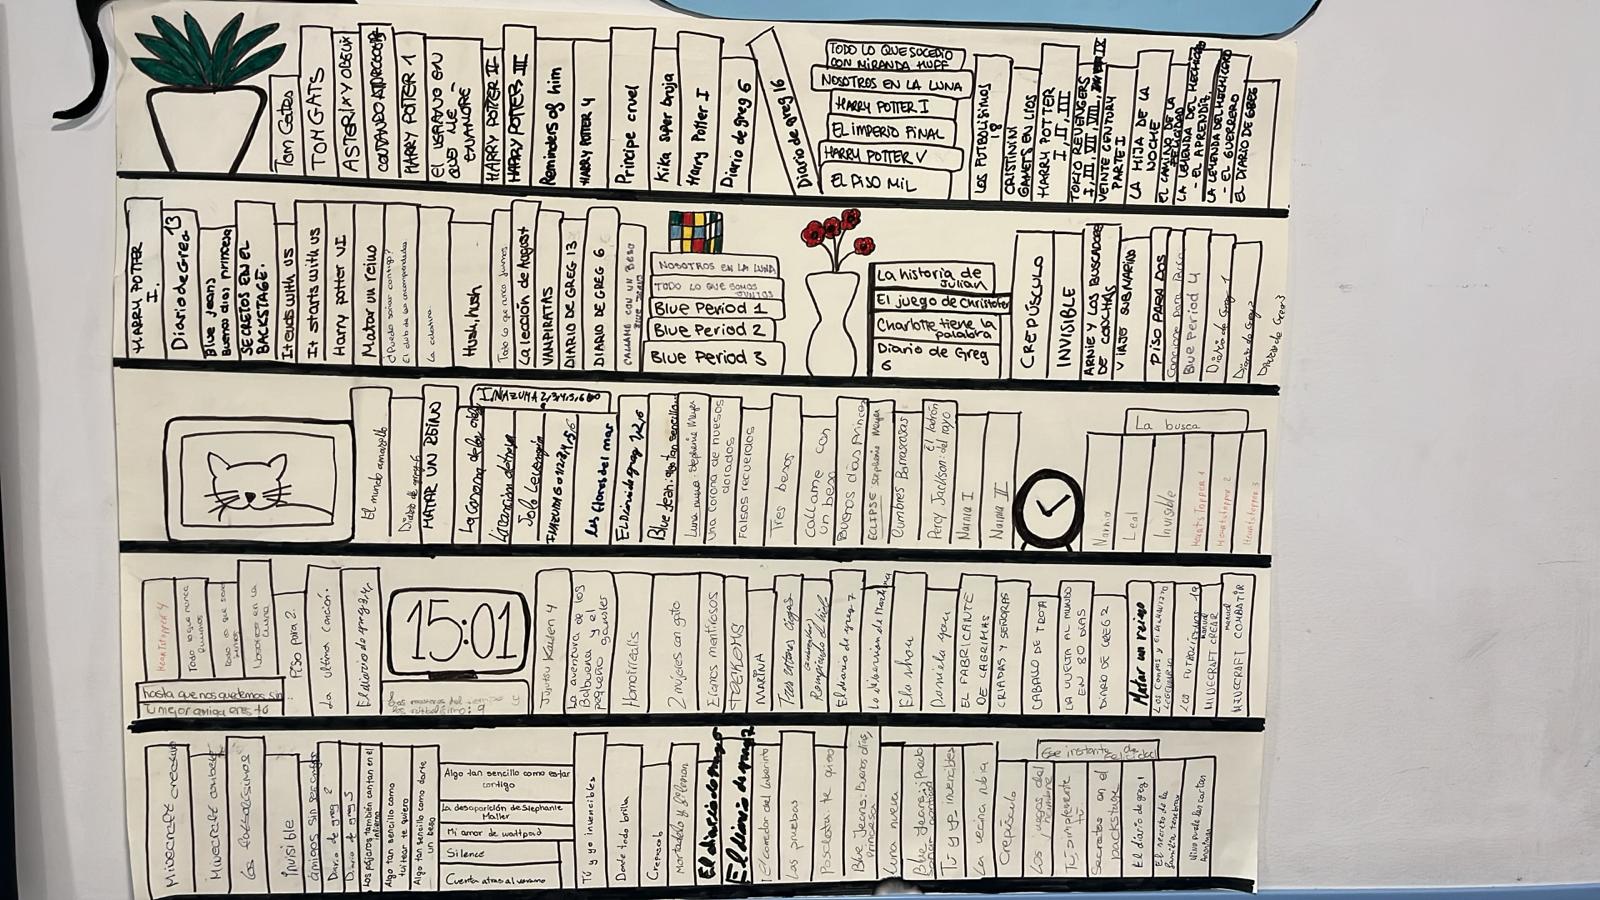 Tom Gates
TOM GATS
ASTERIX Y OBELIX
HARRY POTTER 1
EL VERANO EN
QUE ME
ENAMORÉ
HARRY POTTER II
HARRY POTTER III
Reminders of him
HARRY POTTER 4
Principe cruel
Kika super bruja
Harry Potter I
Diario de greg 6
Diario de greg 16
TODO LO QUE SUCEDIO
CON MIRANDA HUFF
NOSOTROS EN LA LUNA
HARRY POTTER I
EL IMPERIO FINAL
HARRY POTTER V
EL PISO MIL
LOS FUTBOLISIMOS
18
CRISTININI
GAMERS EN LIOS
HARRY POTTER
I, II, III
TOKIO REVENGERS
VEINTE CENTURY
PARTE I
LA HIJA DE LA
NOCHE
EL CAMINO DE LA
LA LEYENDA DEL HECHICERO
- EL APRENDIZ
LA LEYENDA DEL HECHICERO
- EL GUERRERO
EL DIARIO DE GREG
HARRY POTTER
I.
Diario de Greg 13
Blue jeans
Buenos dias princesa
SECRETOS EN EL
BACKSTAGE.
It ends with us
It starts with us
Harry potter VI
Matar un reino
¿Puedo soñar contigo?
El club de los incomprendidos
Hush, hush
Todo lo que nunca fuimos
La lección de August
VAMPIRATAS
DIARIO DE GREG 13
DIARIO DE GREG 6
CALLAME CON UN BESO
BLUE JEANS
NOSOTROS EN LA LUNA
TODO LO QUE SOMOS
JUNTOS
Blue Period 1
Blue Period 2
Blue Period 3
La historia de
Julian
El juego de Christofer
Charlotte tiene la
palabra
Diario de Greg
6
CREPÚSCULO
INVISIBLE
ARNIE Y LOS BUSCADORES
DE CONCHAS
VIAJE SUBMARINO
PISO PARA DOS
Blue Period 4
Diario de Greg 1
Diario de Greg 2
Diario de Greg 3
El mundo amarillo
Diario de greg 6
MATAR UN REINO
INAZUMA 2,3,4,5,6
Solo Leveling
las flores del mar
El Diario de greg 1,2,6
Luna nueva Stephenie Meyer
Una corona de huesos
dorados
Falsos recuerdos
Tres besos
Callame con
un beso
Buenos dias Princesa
ECLIPSE Stephenie Meyer
Cumbres Borrascosas
Percy Jackson: el ladrón
del rayo
Narnia I
Narnia II
La busca
Narnia
Leal
Invisible
Heartstopper 1
Heartstopper 2
Heartstopper 3
Heartstopper 4
Todo lo que nunca
fuimos
Todo lo que somos
juntos
Nosotros en la
luna
Piso para 2.
hasta que nos quedemos sin..
Tu mejor amiga eres tú
La última canción.
El diario de greg 4,
15:01
Jujutsu Kaisen 4
La aventura de los
Balbuena y el
pequeño gánster
Homorrealis
2 mujeres un gato
Eramos mentirosos
MARINA
Rompiendo el hielo
El diario de greg 7
Ella show
Daniela you
EL FABRICANTE
DE LAGRIMAS
CRIADAS Y SEÑORAS
CABALLO DE TROYA
LA VUELTA AL MUNDO
EN 80 DIAS
DIARIO DE GREG 2
Matar un reino
MINECRAFT CREAR
manual
MINECRAFT COMBATIR
manual
Minecraft creativo
Minecraft combate
los futbolisimos
Invisible
Diario de greg 2
Diario de greg 5
Los pájaros también cantan en el
infierno
Algo tan sencillo como
tuitear te quiero
Algo tan sencillo como darte
un beso
Algo tan sencillo como estar
contigo
La desaparición de Stephanie
Mailer
Mi amor de wattpad
Silence
Cuenta atras al verano
Tú y yo invencibles
Donde todo brilla
Crepuscul
Mortadelo y filemon
El diario de greg 5
El diario de greg 7
El corredor del laberinto
Las pruebas
Posdata te quiero
Blue Jeans: Buenos dias,
princesa
Luna nueva
Blue jeans: ¿puedo
soñar contigo?
Tú y yo invencibles
La vecina rubia
Crepúsculo
Ese instante de
felicidad
Los juegos del
hambre
Tú simplemente
tú
Secretos en el
backstage
El diario de greg 1
El secreto de la
familia tenebrax